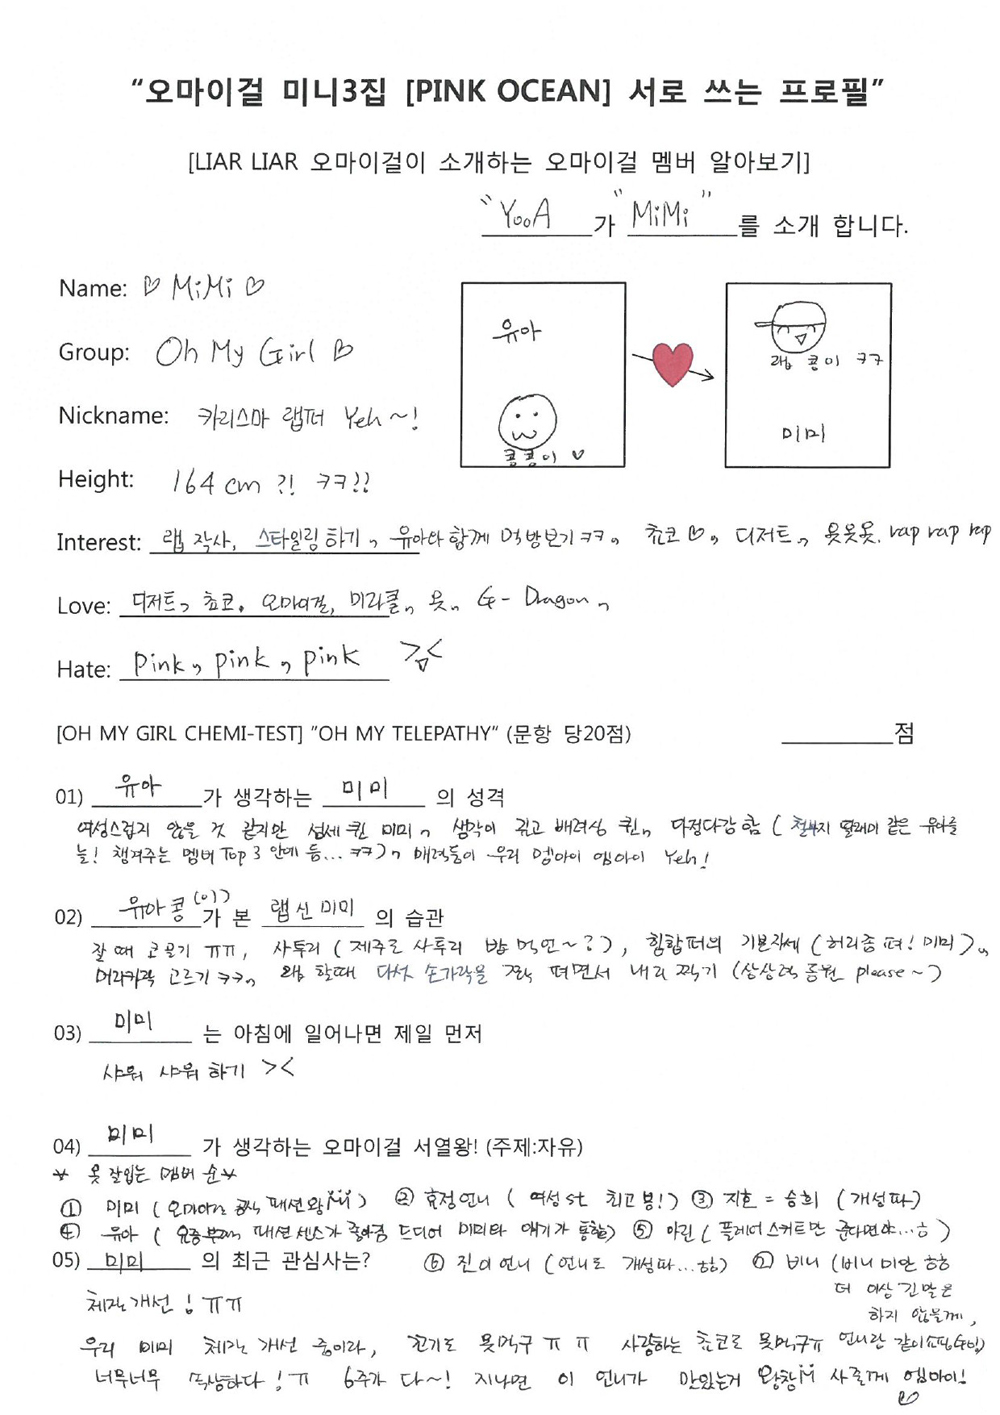 “오마이걸 미니3집 [PINK OCEAN] 서로 쓰는 프로필”
[LIAR LIAR 오마이걸이 소개하는 오마이걸 멤버 알아보기]
"YooA 가 "MiMi" 를 소개 합니다.
Name: ♡ MiMi ♡
Group: Oh My Girl ♡
유아
콩콩이 ♡
랩 콩이 ㅋㅋ
미미
Nickname: 카리스마 랩퍼 Yeh ~!
Height: 164 cm ?! ㅋㅋ!!
Interest: 랩 작사, 스타일링 하기, 유아와 함께 먹방보기 ㅋㅋ, 쵸코 ♡, 디저트, 옷옷옷, rap rap rap
Love: 디저트, 쵸코, 오마이걸, 미라클, 옷, G-Dragon,
Hate: Pink, pink, pink
[OH MY GIRL CHEMI-TEST] ”OH MY TELEPATHY“ (문항 당20점) 점
01) 유아 가 생각하는 미미 의 성격
여성스럽지 않을 것 같지만 섬세 퀸 미미, 생각이 깊고 배려심 퀸, 다정다감 함 ( 철부지 딸래미 같은 유아를
늘! 챙겨주는 멤버 Top 3 안에 듬... ㅋㅋ), 매력둥이 우리 엠아이 엠아이 Yeh!
02) 유아콩(이)가 본 랩신미미 의 습관
잘 때 코골기 ㅠㅠ, 사투리 ( 제주도 사투리 밥 먹언~? ), 힙합퍼의 기본자세 (허리좀 펴! 미미),
머리카락 고르기 ㅋㅋ, 랩 할때 다섯 손가락을 쫙 펴면서 내리 찍기 (상상력 동원 please ~)
03) 미미 는 아침에 일어나면 제일 먼저
샤워 샤워 하기 ><
04) 미미 가 생각하는 오마이걸 서열왕! (주제:자유)
* 옷 잘입는 멤버 순 *
① 미미 ( 오마이걸 공식 패션왕 ) ② 효정언니 ( 여성st 최고봉! ) ③ 지호 = 승희 ( 개성파 )
④ 유아 ( 요즘 부쩍 패션센스가 좋아짐 드디어 미미와 얘기가 통함) ⑤ 아린 ( 플레어스커트만 준다면야...ㅎ )
05) 미미 의 최근 관심사는? ⑥ 진이언니 (언니도 개성파...ㅎㅎ) ⑦ 비니 (비니 미안 ㅎㅎ
더 이상 긴말은
하지 않을게,
체질개선 ! ㅠㅠ
우리 미미 체질 개선 중이라, 고기도 못먹구 ㅠ ㅠ 사랑하는 쵸코도 못먹구ㅠ 언니랑
너무너무 속상하다 ! ㅠ 6주가 다~! 지나면 이 언니가 맛있는거 왕창 사줄게 엠아이!